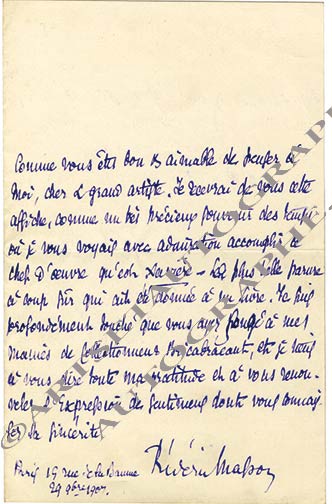 Comme vous êtes bon & aimable de penser à
moi, cher & grand artiste. Je recevrai de vous cette
affiche, comme un très précieux souvenir des temps
où je vous voyais avec admiration accomplir ce
chef d'œuvre qu'est La - La plus belle parure
à coup sûr qui ait été donnée à un livre. Je suis
profondément touché que vous ayez songé à mes
manies de collectionneur et je tiens
à vous dire toute ma gratitude et à vous renou-
veler l'expression de sentiments dont vous connais-
sez la sincérité
Frédéric Masson
Paris 15 rue de la Baume
29 9bre 1907